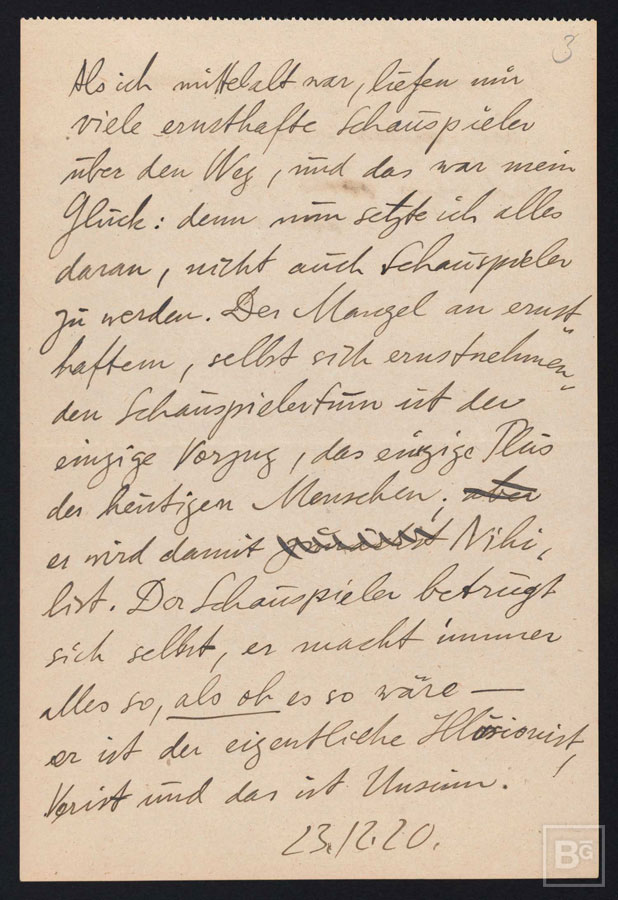 3
Als ich mittelalt war, liefen mir
viele ernsthafte Schauspieler
über den Weg, und das war mein
Glück: denn nun setzte ich alles
daran, nicht auch Schauspieler
zu werden. Der Mangel an ernst
haftem, selbst sich ernstnehmen-
den Schauspielertum ist der
einzige Vorzug, das einzige Plus
des heutigen Menschen; aber
er wird damit Nihi-
list. Der Schauspieler betrügt
sich selbst, er macht immer
alles so, als ob es so wäre —
er ist der eigentliche Illusionist,
Verist und das ist Unsinn.
23.12.20.
BG